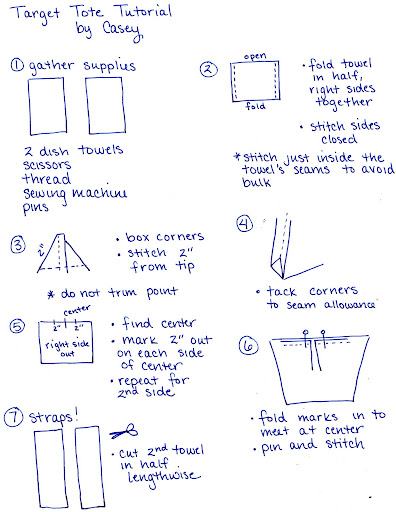 Target Tote Tutorial
by Casey
① gather supplies
2 dish towels
scissors
thread
sewing machine
pins
②
open
fold
• fold towel
in half,
right sides
together
• stitch sides
closed
*stitch just inside the
towel's seams to avoid
bulk
③
• box corners
• stitch 2"
from tip
* do not trim point
④
• tack corners
to seam allowance
⑤
center
2" 2"
right side
out
• find center
• mark 2" out
on each side
of center
• repeat for
2nd side
⑥
• fold marks in to
meet at center
• pin and stitch
⑦ straps!
• cut 2nd towel
in half
lengthwise